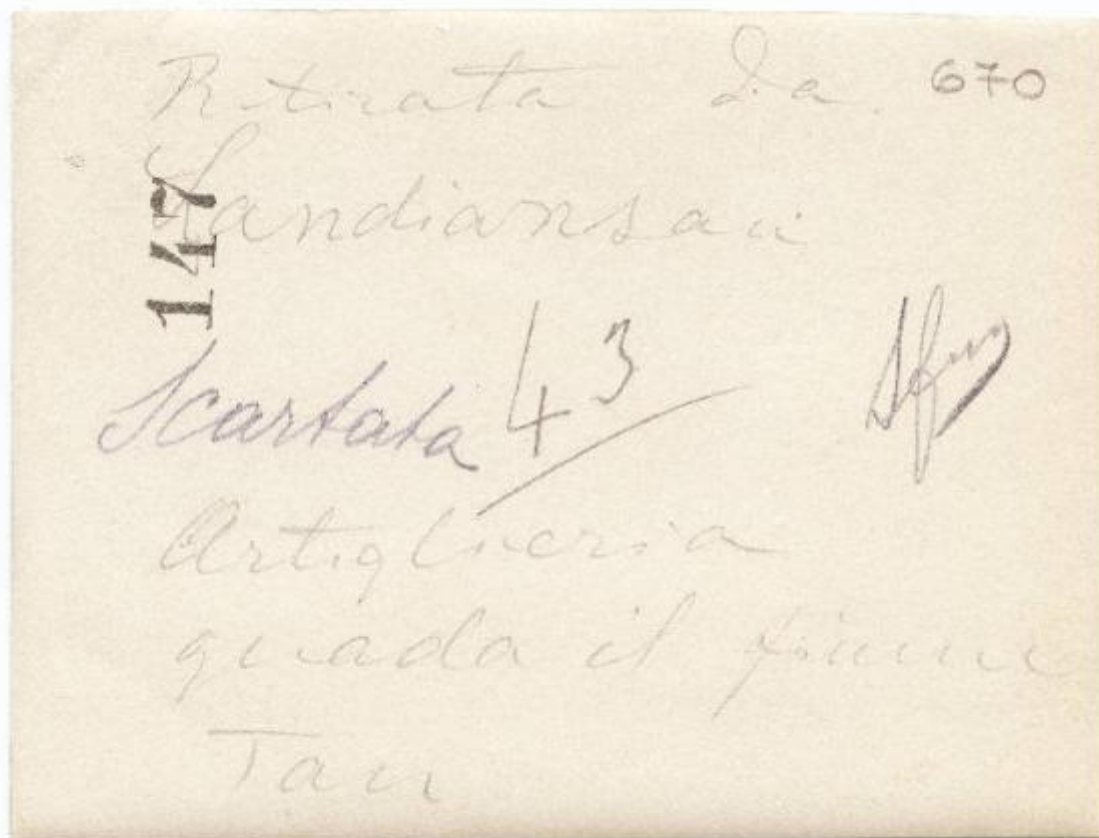 Ritirata da 670
Landiansan
147
Scartata 43
Artiglieria
guada il fiume
Tan